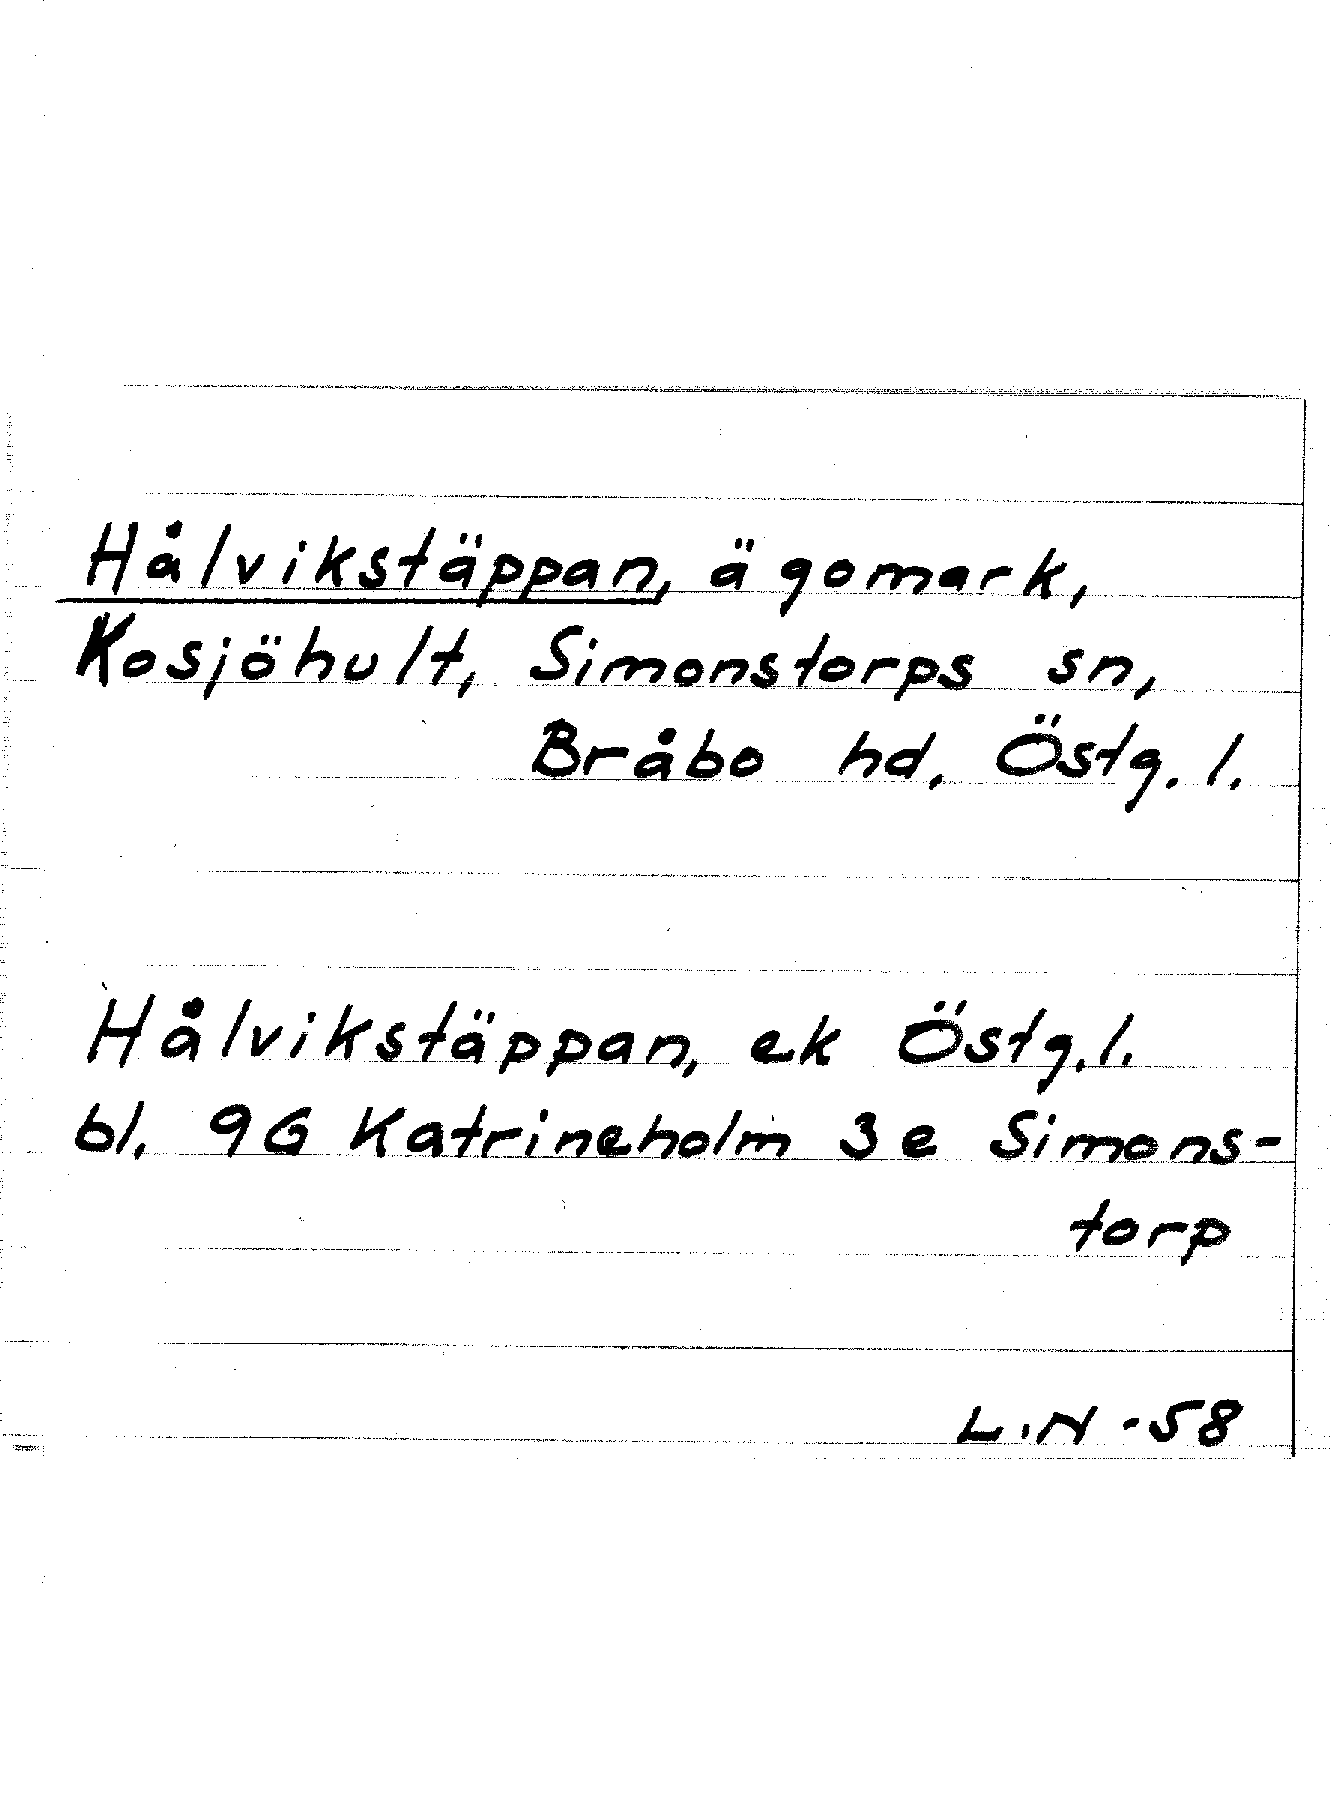 Hålvikstäppan, ägomark,
Kosjöhult, Simonstorps sn,
Bråbo hd. Östg. l.
Hålvikstäppan, ek Östg. l.
bl. 9G Katrineholm 3e Simons-
torp
L.N -58